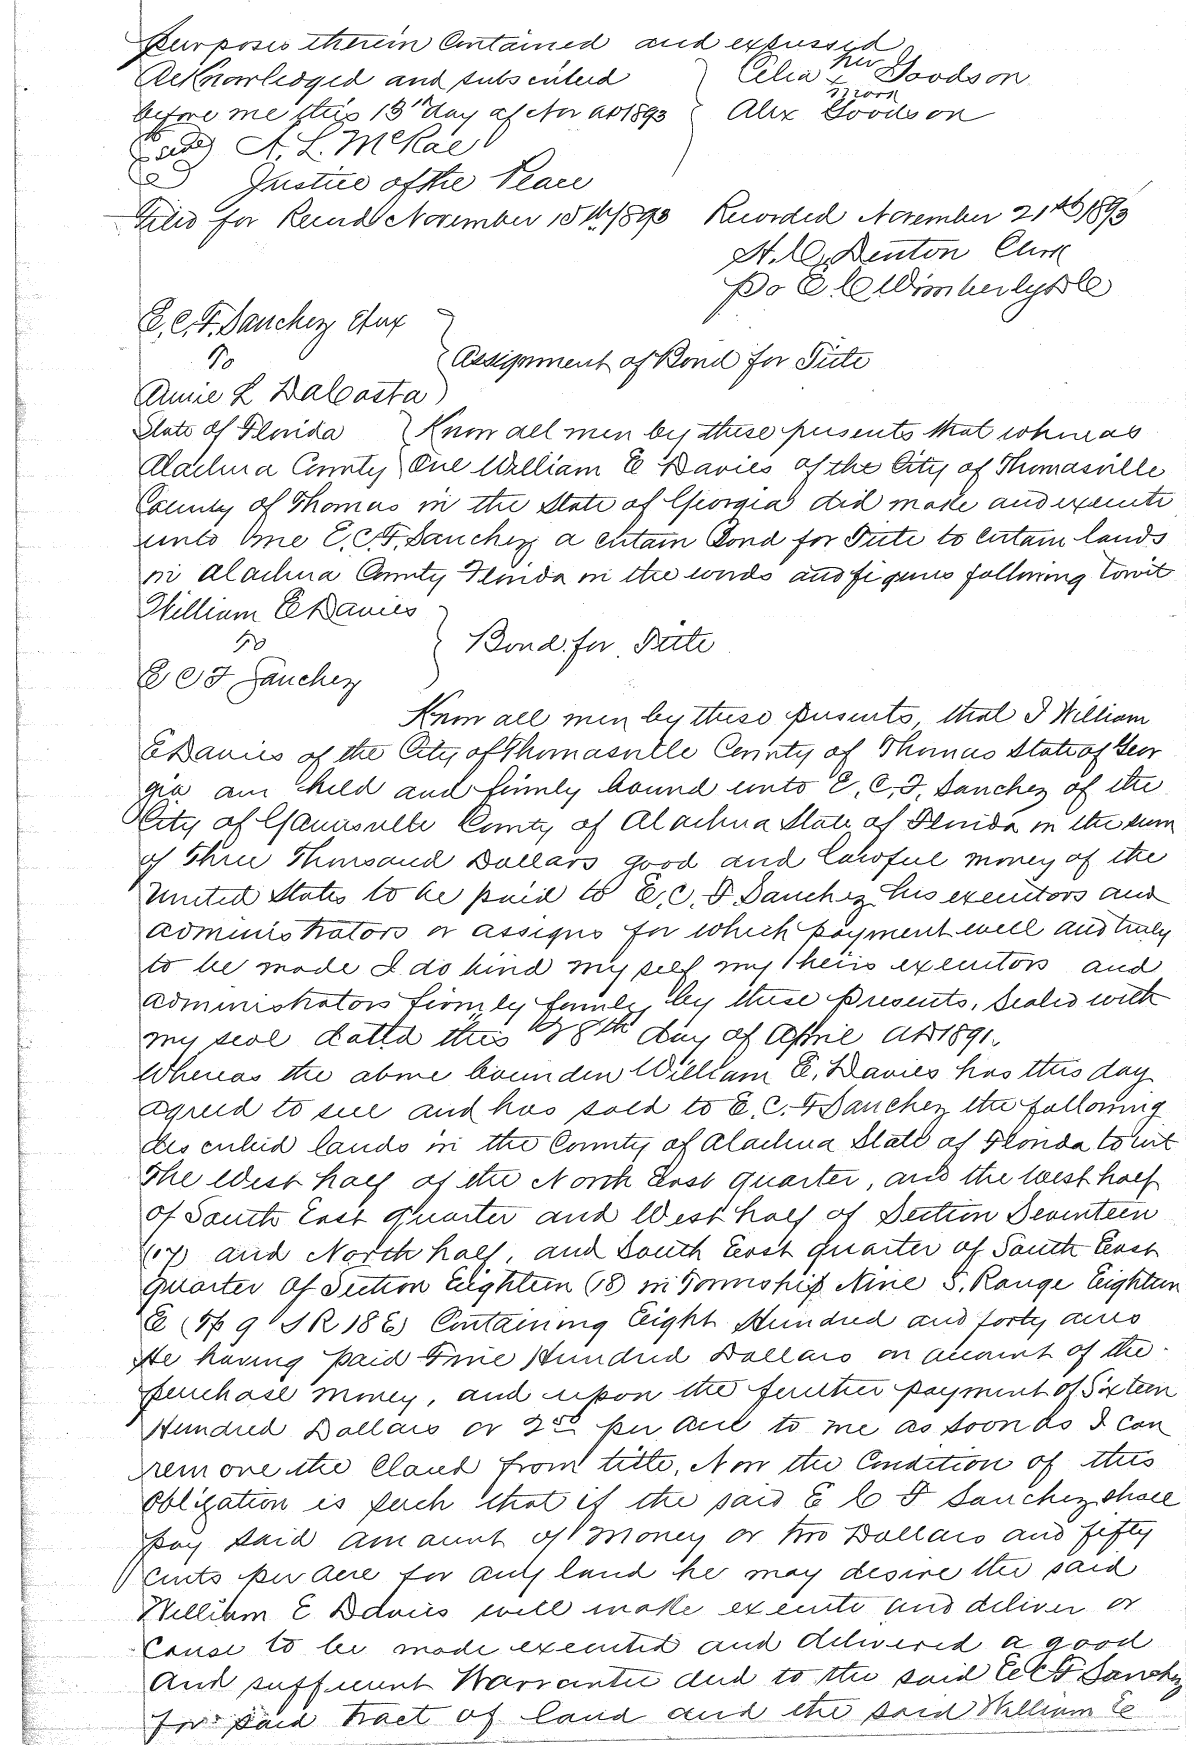 purposes therein Contained and expressed
Acknowledged and subscribed } Celia her x mark Goodson
before me this 13th day of Nov AD 1893 } Alex Goodson
(Seal) A. L. McRae
Justice of the Peace
Filed for Record November 15th 1893 Recorded November 21st 1893
H. C. Denton Clerk
Pr E C Wimberly DC
E. C. F. Sanchez Etux
To } Assignment of Bond for Title
Annie L DaCosta
State of Florida } Know all men by these presents that whereas
Alachua County } One William E Davies of the City of Thomasville
County of Thomas in the State of Georgia did make and execute
unto One E. C. F. Sanchez a certain Bond for Title to certain lands
in Alachua County Florida in the words and figures following towit
William E Davies
To } Bond for Title
E C F Sanchez
Know all men by these presents, that I William
E Davies of the City of Thomasville County of Thomas State of Geor
gia am held and firmly bound unto E. C. F. Sanchez of the
City of Gainesville County of Alachua State of Florida in the sum
of Three Thousand Dollars good and lawful money of the
United States to be paid to E. C. F. Sanchez his executors and
administrators or assigns for which payment well and truly
to be made I do bind my self my heirs executors and
administrators firmly firmly by these presents. Sealed with
my seal dated this 28th day of April AD 1891.
Whereas the above bounden William E. Davies has this day
agreed to sell and has sold to E. C. F Sanchez the following
described lands in the County of Alachua State of Florida to wit
The West half of the North East quarter, and the West half
of South East quarter and West half of Section Seventeen
(17) and North half, and South East quarter of South East
quarter of Section Eighteen (18) in Township Nine S. Range Eighteen
E (Tp 9 S R 18 E) Containing Eight Hundred and forty acres
He having paid Five Hundred Dollars on account of the
purchase money, and upon the further payment of Sixteen
Hundred Dollars or 2 50 per acre to me as soon as I can
remove the Cloud from title. Now the Condition of this
obligation is such that if the said E C F Sanchez shall
pay said amount of Money or two Dollars and fifty
cents per acre for any land he may desire the said
William E Davies will make execute and deliver or
cause to be made executed and delivered a good
and sufficient Warrantee deed to the said E C F Sanchez
for said tract of land and the said William E